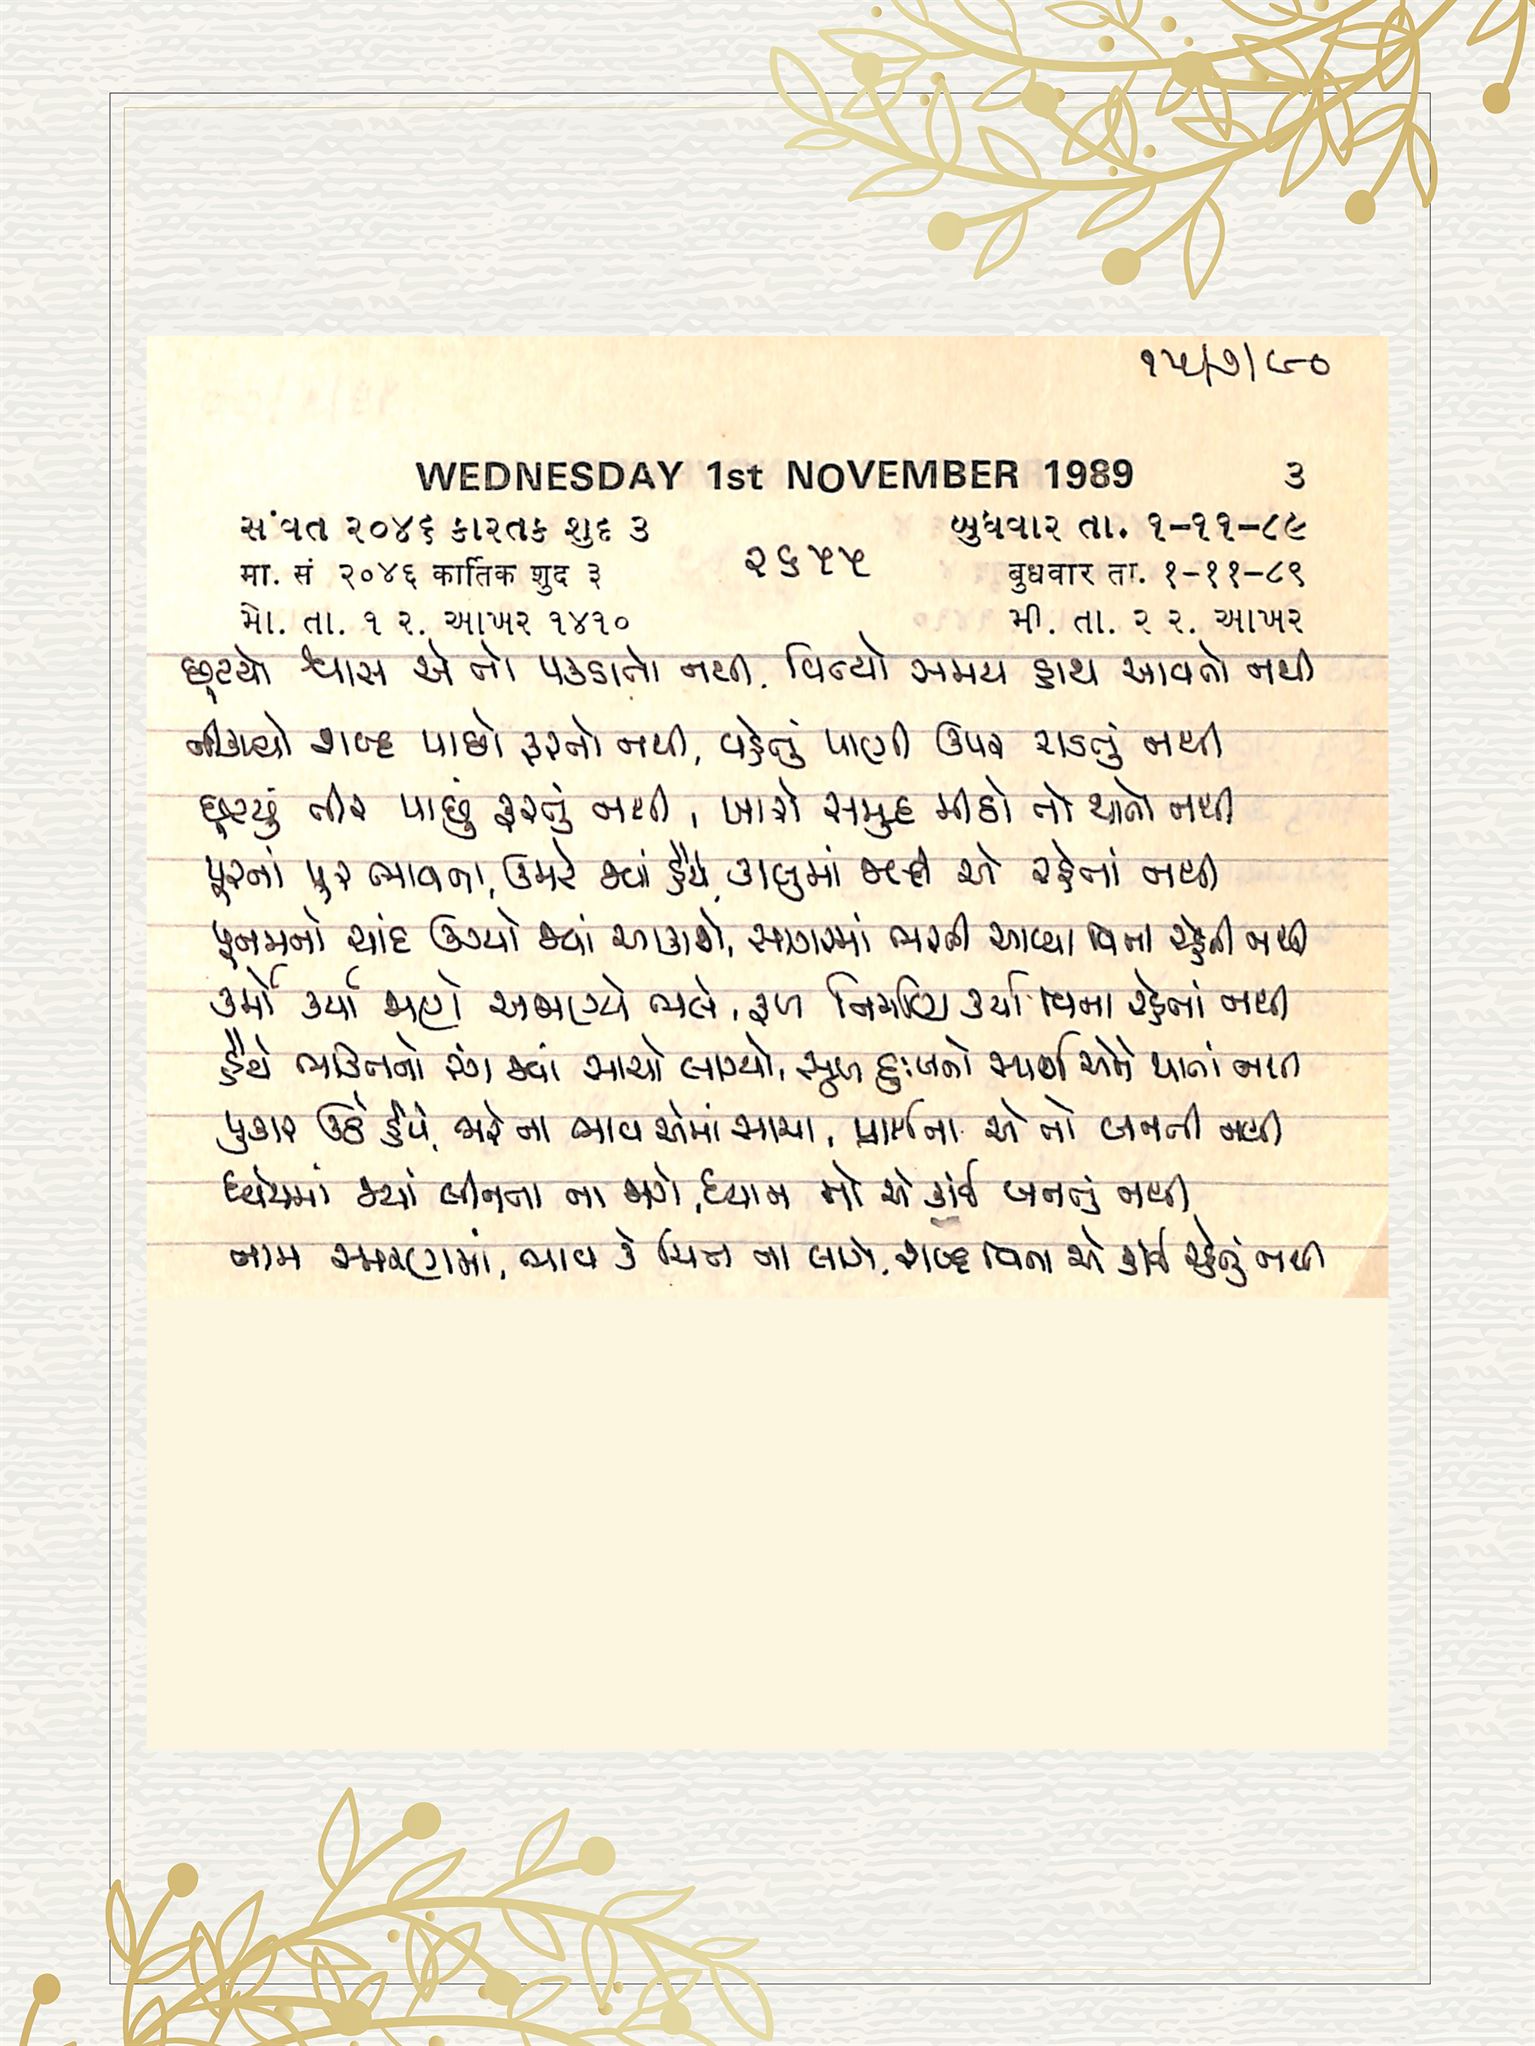 ૧૫/૭/૯૦
WEDNESDAY 1st NOVEMBER 1989 ૩
સંવત ૨૦૪૬ કારતક શુદ ૩ બુધવાર તા. ૧-૧૧-૮૯
मा. सं २०४६ कार्तिक शुद ३ ૨૬૫૫ बुधवार ता. १-११-८९
મો. તા. ૧ ર. આખર ૧૪૧૦ મી. તા. ૨ ર. આખર
છૂટયો શ્વાસ એ તો પકડાતો નથી. વિત્યો સમય હાથ આવતો નથી
નીકળ્યો શબ્દ પાછો ફરતો નથી, વહેતું પાણી ઉપર ચડતું નથી
છૂટયું તીર પાછું ફરતું નથી, ખારો સમુદ્ર મીઠો તો થાતો નથી
પૂરનાં પુર ભાવના, ઉમટે જ્યાં હૈયે, કાબુમાં જલ્દી એ રહેતાં નથી
પુનમનો ચાંદ ઉગ્યો જ્યાં આકાશે, સાગરમાં ભરતી આવ્યા વિના રહેતી નથી
કર્મો કર્યા જાણે અજાણ્યે ભલે, ફળ નિર્માણ કર્યા વિના રહેતાં નથી
હૈયે ભક્તિનો રંગ જ્યાં સાચો લાગ્યો, સુખ દુઃખનો સ્પર્શ એને થાતાં નથી
પુકાર ઉઠે હૈયે, જાગે ના ભાવ એમાં સાચા, પ્રાર્થના એ તો બનતી નથી
ધ્યેયમાં જ્યાં લીનતા ના જાગે, ધ્યાન તો એ કાંઈ બનતું નથી
નામ સ્મરણમાં, ભાવ કે ચિત્ત ના લાગે, શબ્દ વિના એ કાંઈ રહેતું નથી